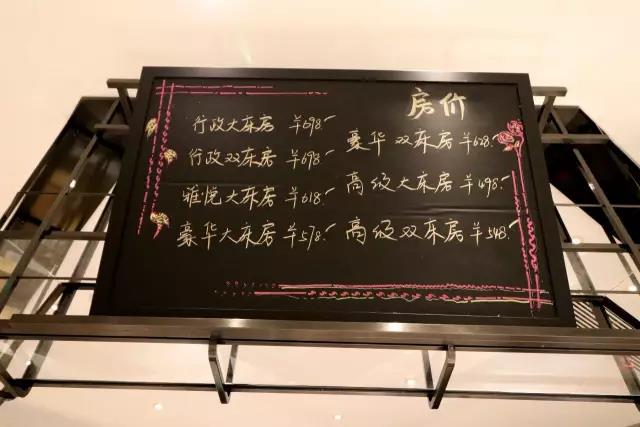 房价
行政大床房 ¥698.-
行政双床房 ¥698.-
雅悦大床房 ¥618.-
豪华大床房 ¥578.-
豪华双床房 ¥628.-
高级大床房 ¥498.-
高级双床房 ¥548.-